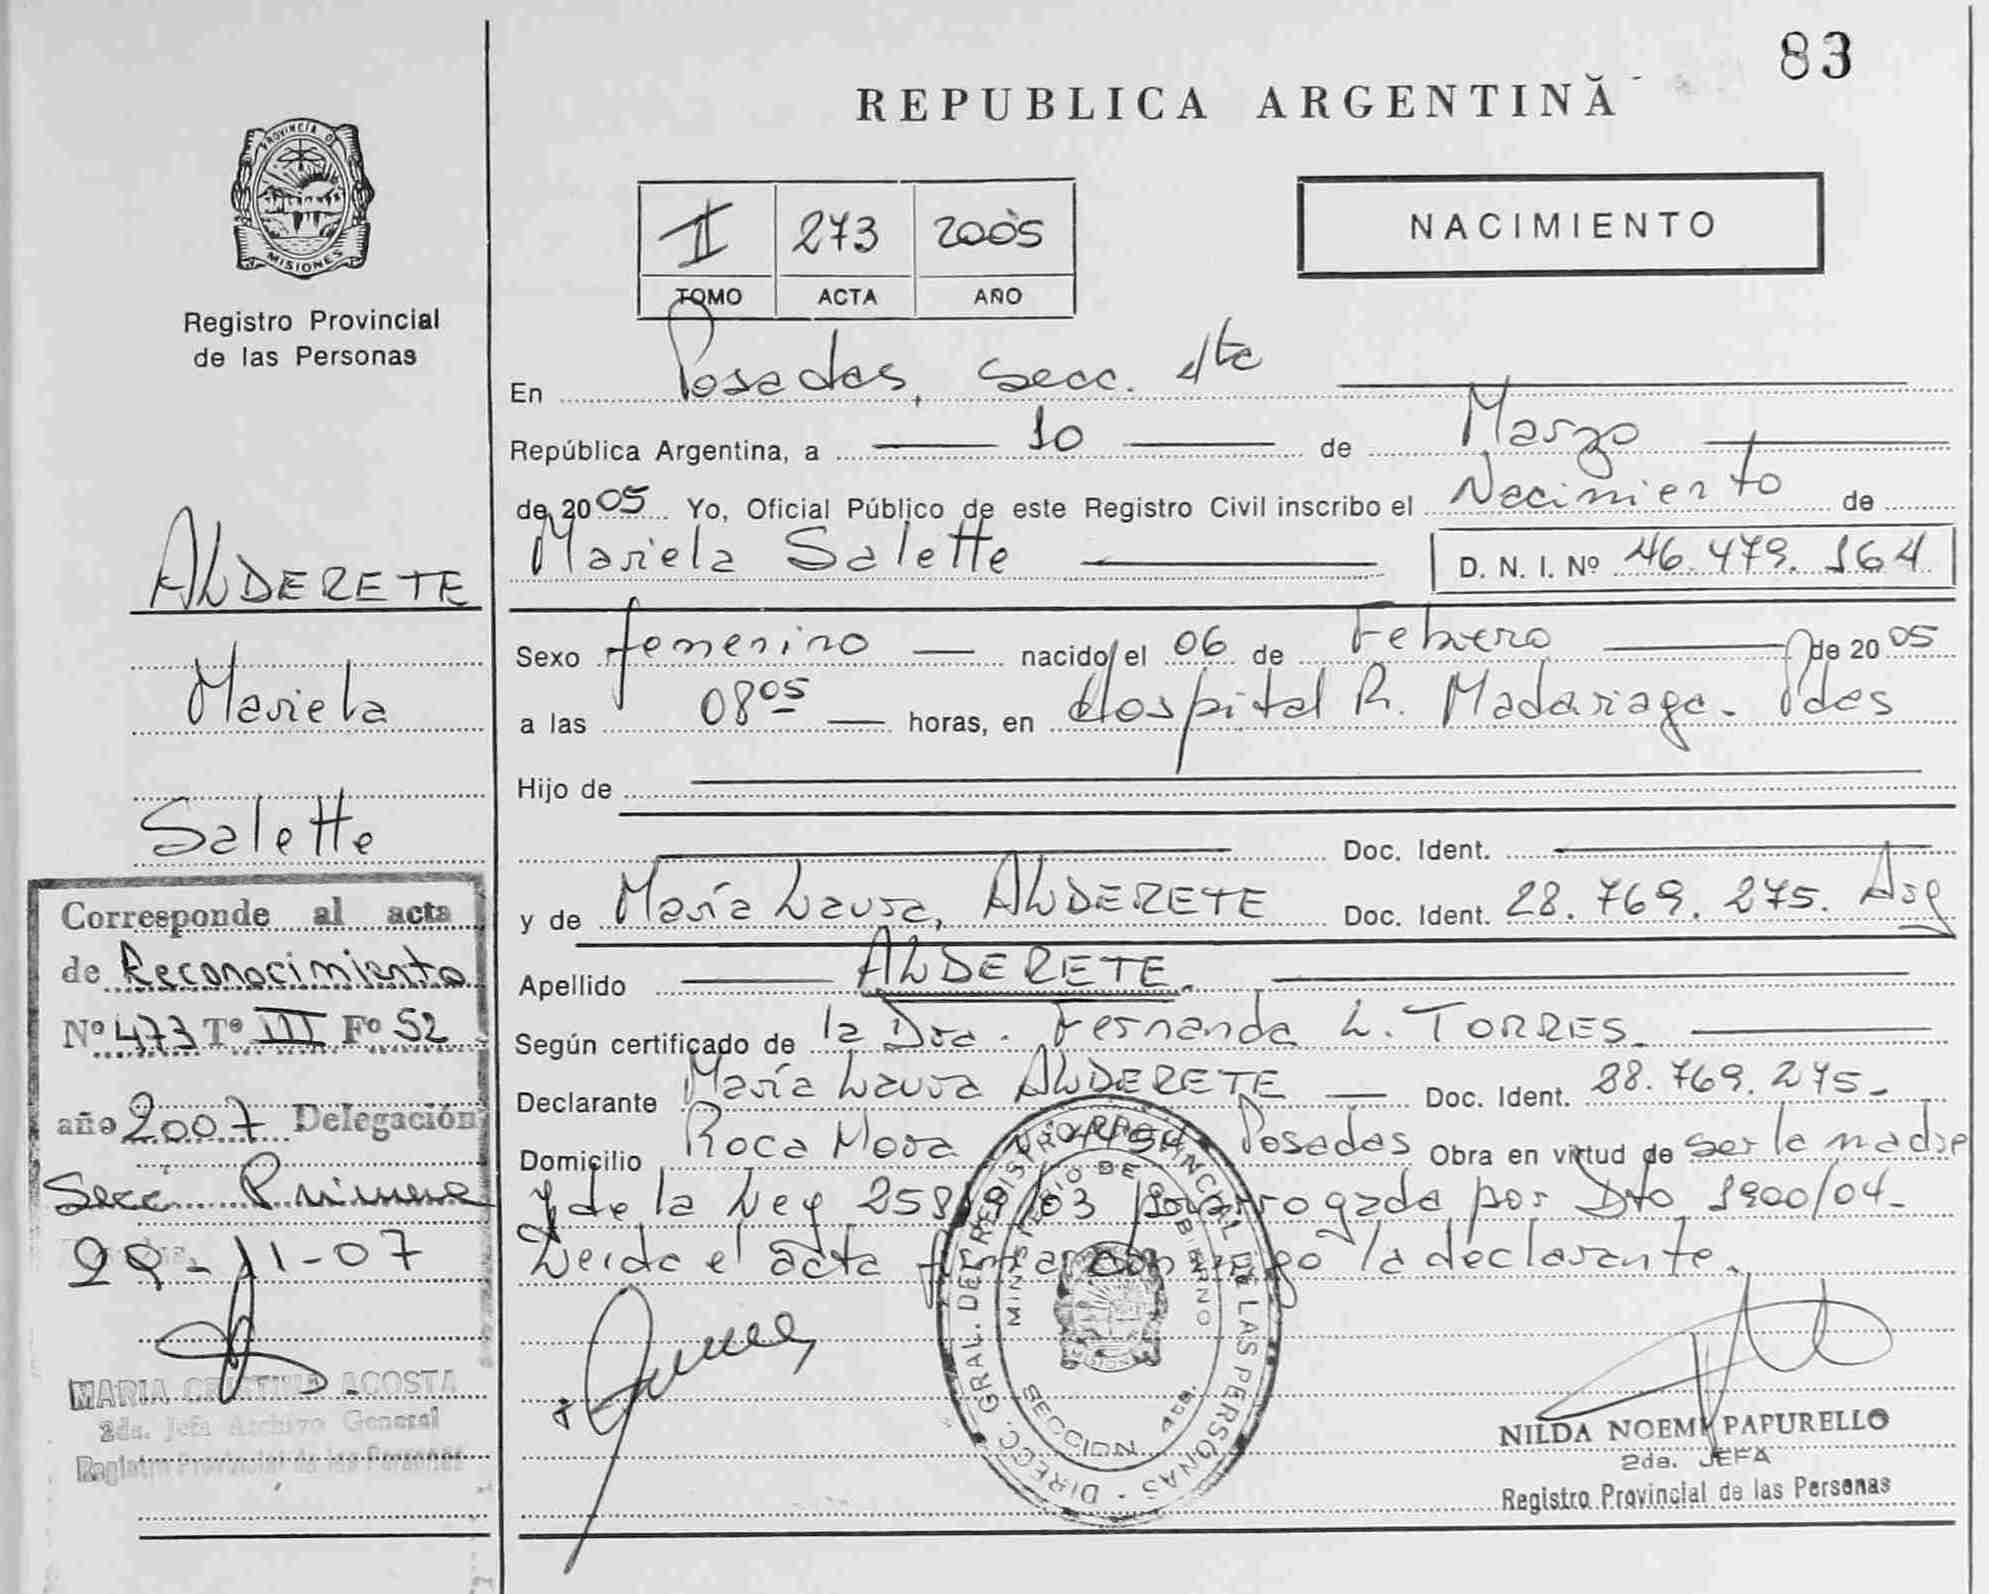 83
REPUBLICA ARGENTINA
PROVINCIA DE
MISIONES
Registro Provincial
de las Personas
II 273 2005
TOMO ACTA AÑO
NACIMIENTO
En Posadas, Secc. 4ta
República Argentina, a 10 de Marzo
de 2005 Yo, Oficial Público de este Registro Civil inscribo el Nacimiento de
Mariela Salette D. N. I. Nº 46.479.164
Sexo femenino nacido el 06 de Febrero de 2005
a las 08 05 horas, en Hospital R. Madariaga. Pdas
Hijo de
Doc. Ident.
y de María Laura, ALDERETE Doc. Ident. 28.769.275. Arg
Apellido ALDERETE.
Según certificado de la Dra. Fernanda L. TORRES.
Declarante María Laura ALDERETE Doc. Ident. 28.769.275.-
Domicilio Roca Mora Posadas Obra en virtud de ser la madre
y de la Ley 25819/03 prorrogada por Dto 1900/04-
Leida el acta firma conmigo la declarante.
DIREC. GRAL. DEL REGISTRO PROVINCIAL DE LAS PERSONAS
MINISTERIO DE GOBIERNO
SECCION 4ta.
NILDA NOEMI PAPURELLO
2da. JEFA
Registro Provincial de las Personas
ALDERETE
Mariela
Salette
Corresponde al acta
de Reconocimiento
Nº 473 Tº III Fº 52
año 2007 Delegación
Secc. Primera
29-11-07
MARIA CRISTINA ACOSTA
2da. Jefa Archivo General
Registro Provincial de las Personas